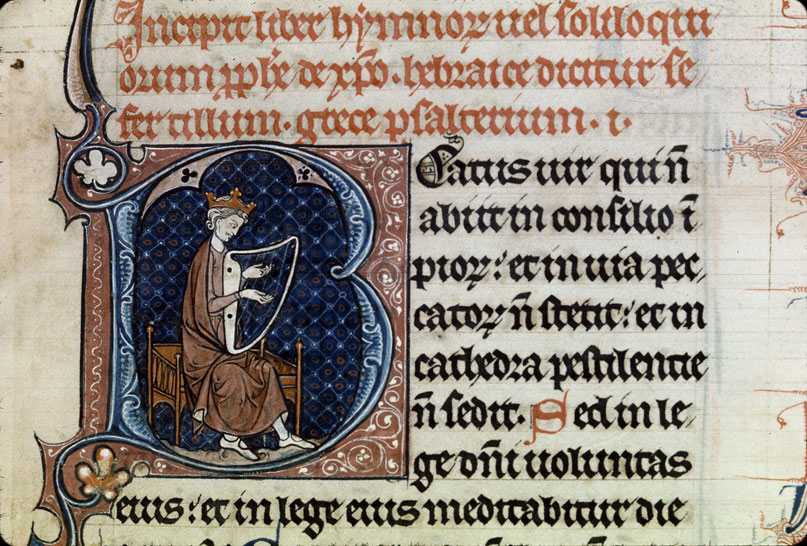 Incipit liber hẏmnoꝝ uel soliloqui
orum ꝓph̅e de xp̅o. hebraice dicitur se
fer tillum. grece psalterium. i.
Beatus uir qui n̅
abiit in consilio i̅
pioꝝ: et in uia pec
catoꝝ n̅ stetit: et in
cathedra pestilentie
n̅ sedit. Sed in le
ge dn̅i uoluntas
eius: et in lege eius meditabitur die